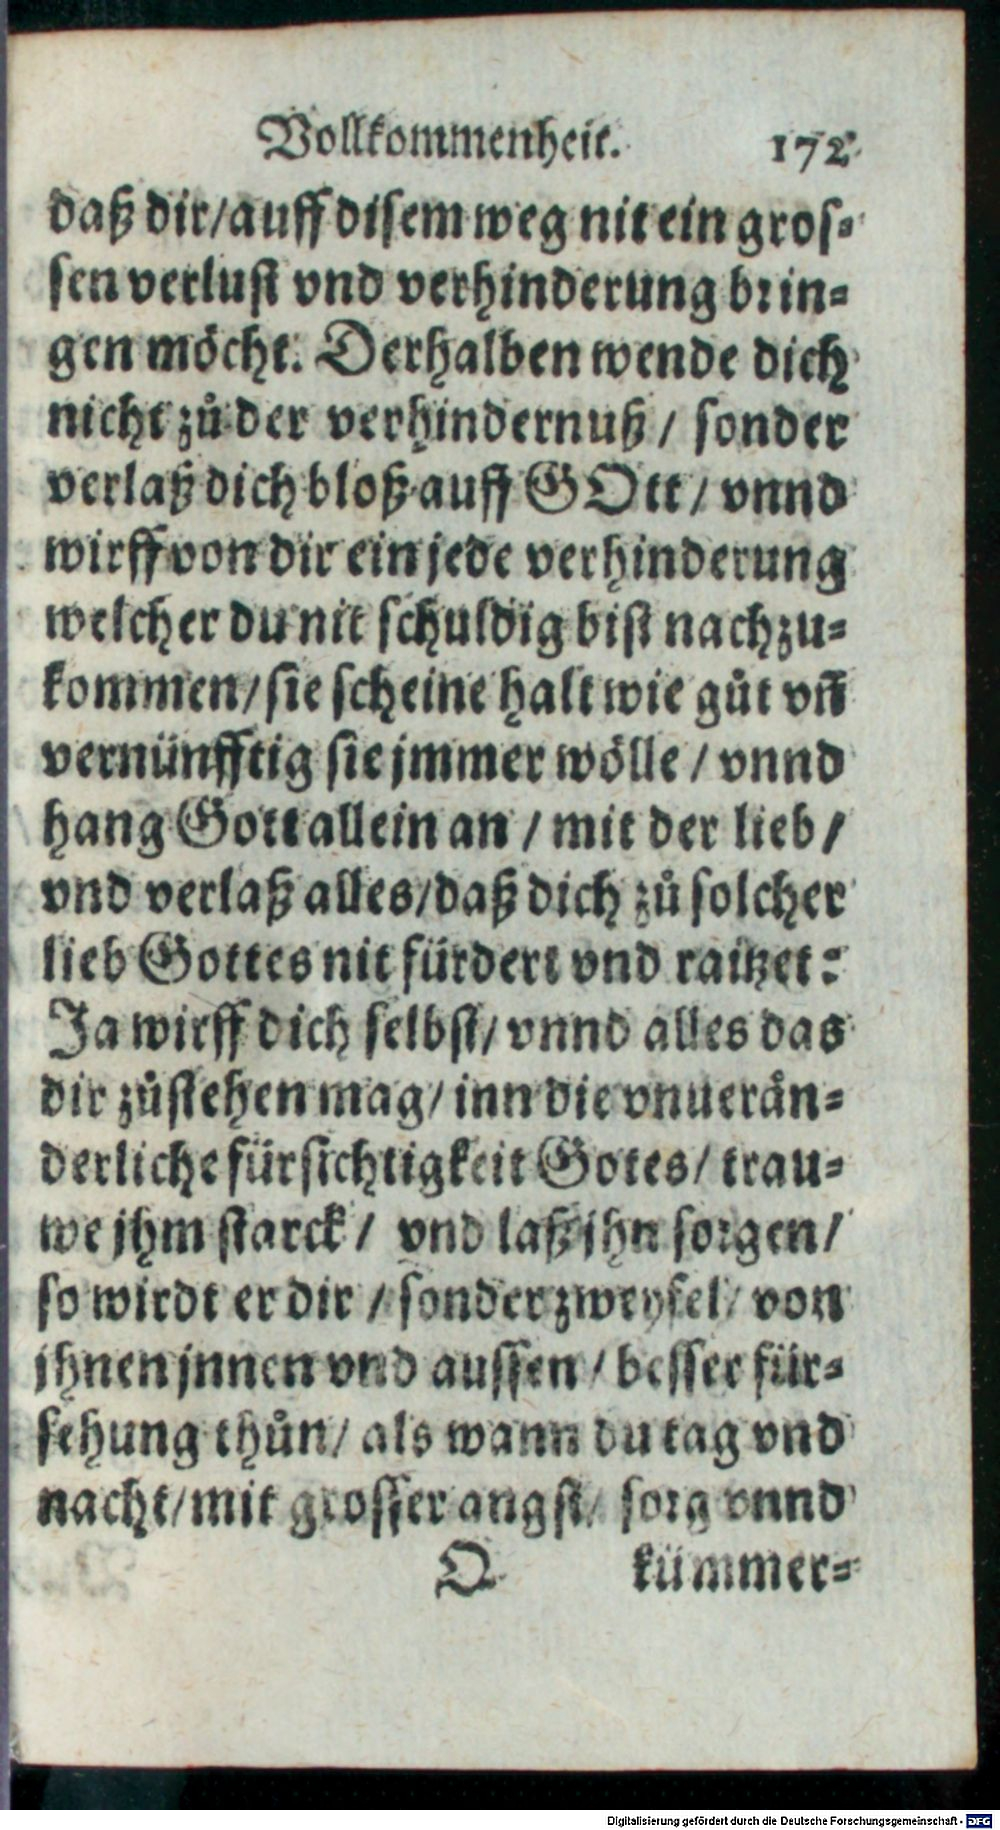 Vollkommenheit. 172
daß dir/auff disem weg nit ein gros-
sen verlust vnd verhinderung brin-
gen möcht. Derhalben wende dich
nicht zů der verhindernuß / sonder
verlaß dich bloß auff GOtt / vnnd
wirff von dir ein jede verhinderung
welcher du nit schuldig bist nachzu-
kommen/sie scheine halt wie gůt vñ
vernünfftig sie jmmer wölle / vnnd
hang Gott allein an / mit der lieb/
vnd verlaß alles/daß dich zů solcher
lieb Gottes nit fürdert vnd raitzet:
Ja wirff dich selbst/ vnnd alles das
dir zůstehen mag/ inn die vnuerän-
derliche fürsichtigkeit Gotes/ trau-
we jhm starck / vnd laß jhn sorgen/
so wirdt er dir / sonder zweyfel/ von
jhnen jnnen vnd aussen / besser für-
sehung thůn/ als wann du tag vnd
nacht/mit grosser angst/ sorg vnnd
O kümmer-
Digitalisierung gefördert durch die Deutsche Forschungsgemeinschaft - DFG